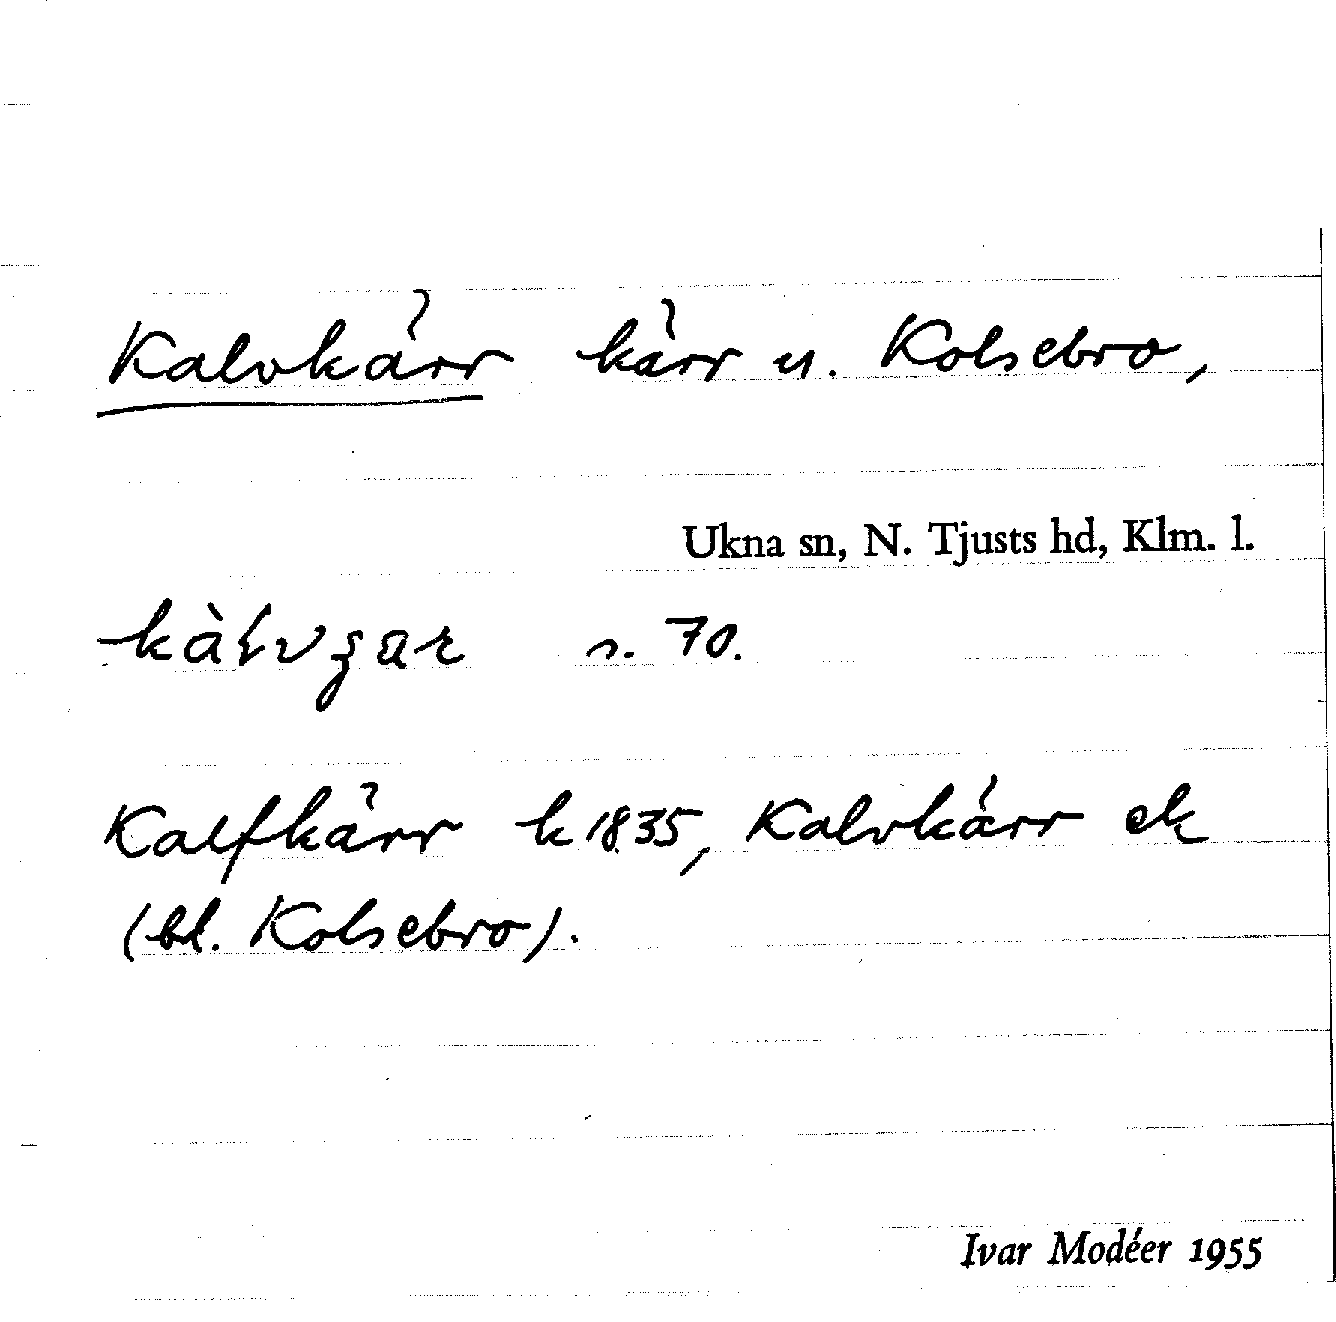 Kalvkärr kärr u. Kolsebro,
Ukna sn, N. Tjusts hd, Klm. l.
s. 70.
Kalfkärr k 1835, Kalvkärr ek
(bl. Kolsebro).
Ivar Modéer 1955